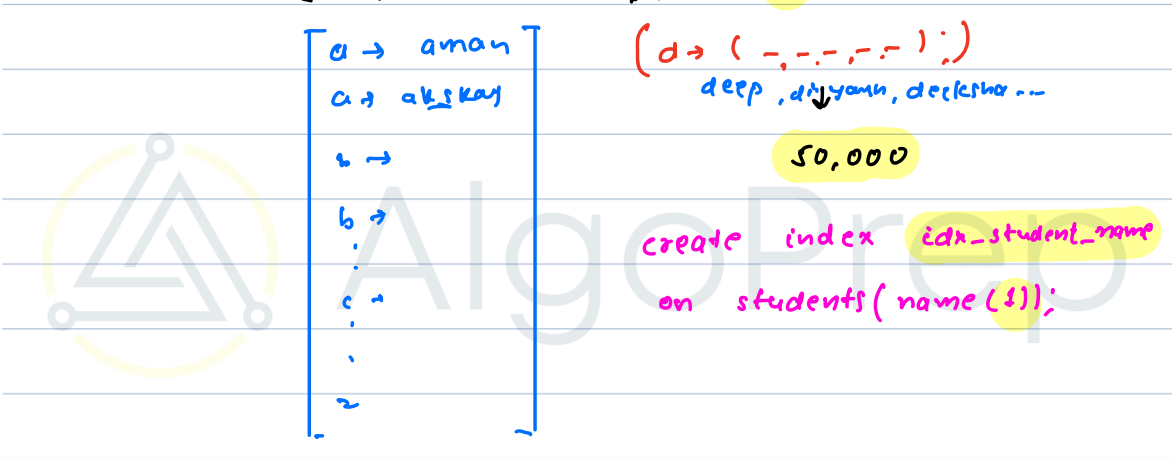 a → aman
a → akshay
b →
b →
c →
z
(d → ( -,-,-,-,- ) ; )
deep , divyann, deeksha ...
50,000
create index idx_student_name
on students( name (1));
AlgoPrep